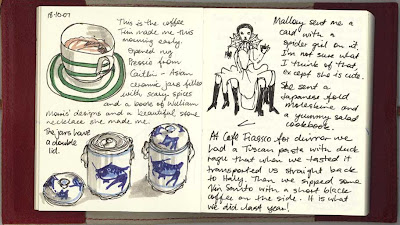 18·10·07
This is the coffee
Tim made me this
morning early.
Opened my
Pressie from
Caitlin - Asian
ceramic jars filled
with soapy spices
and a book of William
Morris' designs and a beautiful stone
necklace she made me.
The jars have
a double
lid.
Mallory sent me a
card with a
spider girl on it.
I'm not sure what
I think of that,
except she is cute.
She sent a
Japanese fold
moleskine and
a yummy salad
cookbook.
At Café Fiasco for dinner we
had a Tuscan pasta with duck
ragu that when we tasted it
transported us straight back
to Italy. Then we sipped some
Vin Santo with a short black
coffee on the side. It is what
we did last year!